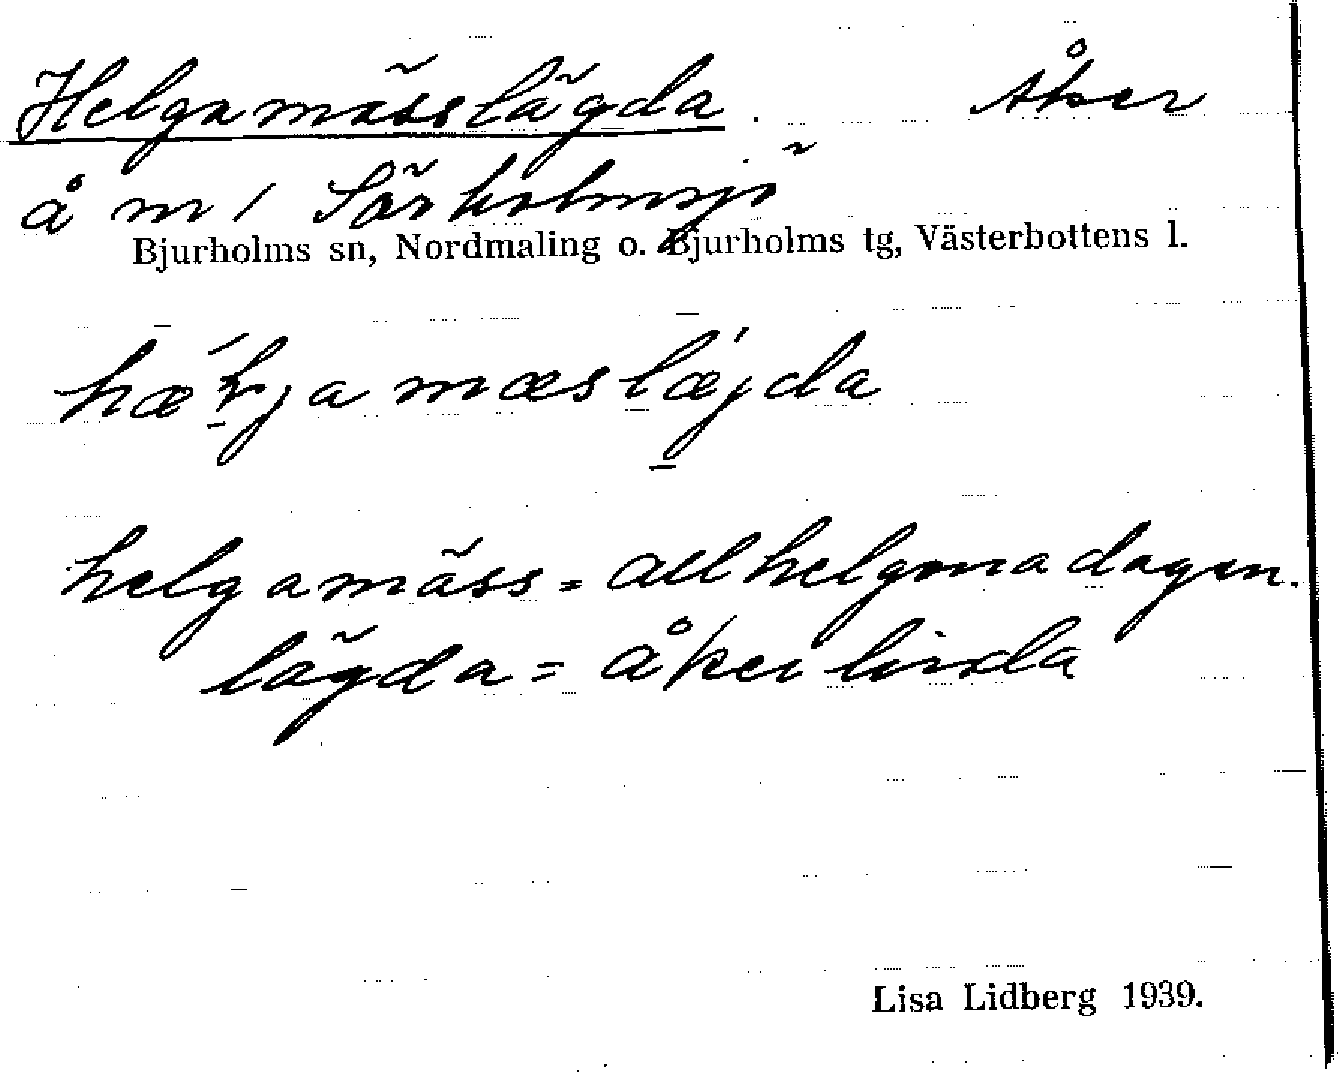 Helgamässlägda. Åker
å m / Särholmsjö
Bjurholms sn, Nordmaling o. Bjurholms tg, Västerbottens l.
hæ´ḷja mæslæ´jda
helgamäss = allhelgonadagen.
lägda = åkerlinda
Lisa Lidberg 1939.